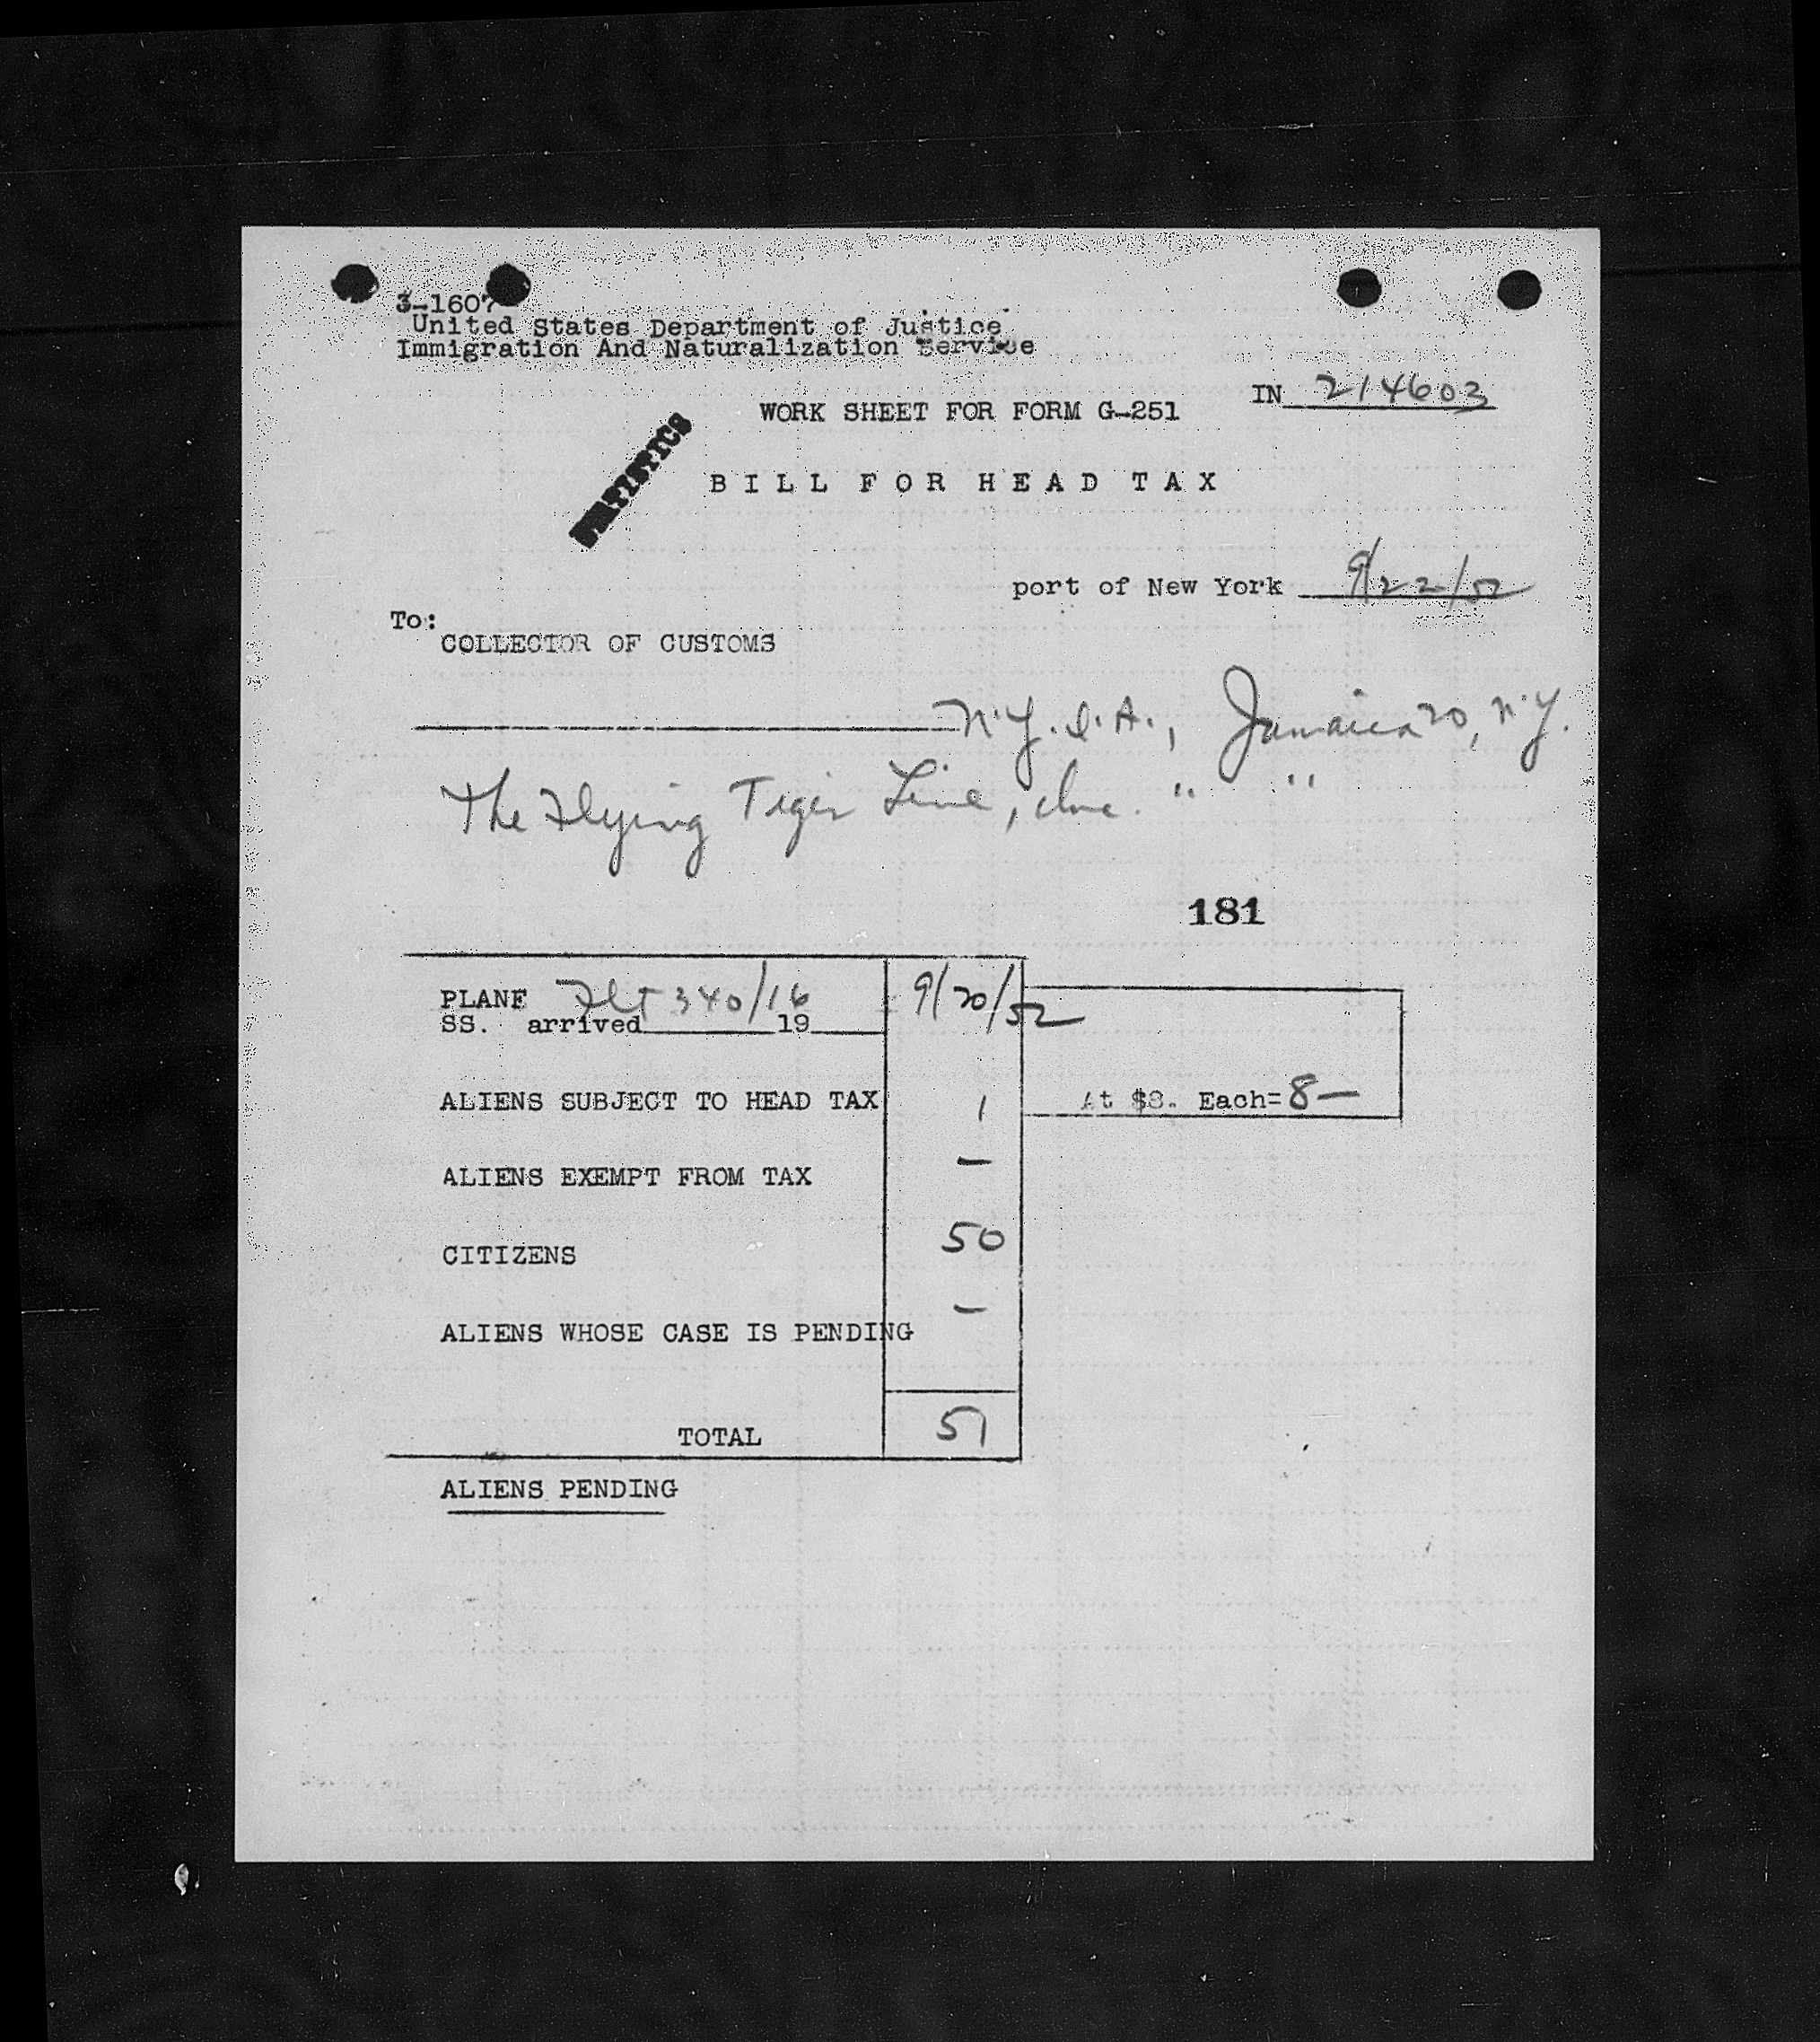 3-1607
United States Department of Justice
Immigration And Naturalization Service
IN 214603
WORK SHEET FOR FORM G-251
STATISTICS
BILL FOR HEAD TAX
port of New York 9/22/52
To:
COLLECTOR OF CUSTOMS
N.Y.I.A., Jamaica 20, N.Y.
The Flying Tiger Line, Inc. " "
181
PLANE Flt 340/16 9/20/52
SS. arrived 19
ALIENS SUBJECT TO HEAD TAX 1 At $8. Each= 8—
ALIENS EXEMPT FROM TAX —
CITIZENS 50
ALIENS WHOSE CASE IS PENDING —
TOTAL 51
ALIENS PENDING